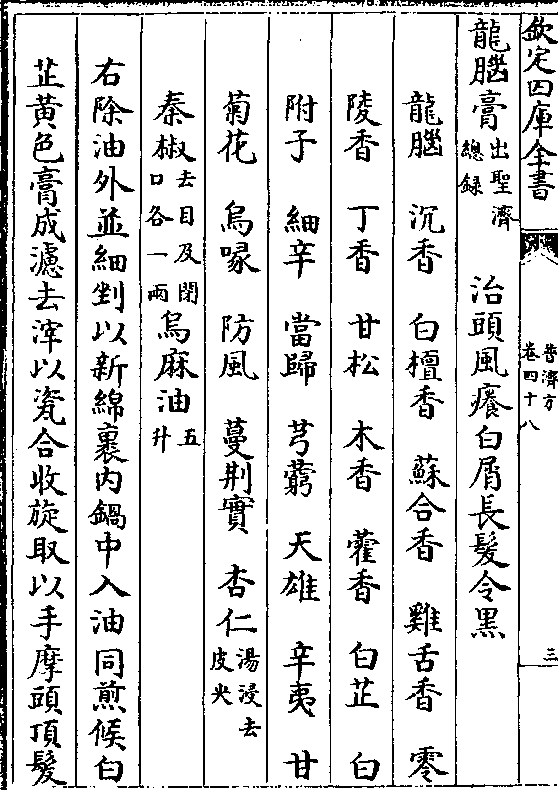 欽定四庫全書
普濟方
卷四十八
三
龍腦膏出聖濟總録　治頭風癢白屑長髮令黒
龍腦　沉香　白檀香　蘇合香　雞舌香　零
陵香　丁香　甘松　木香　藿香　白芷　白
附子　細辛　當歸　芎藭　天雄　辛夷　甘
菊花　烏喙　防風　蔓荆實　杏仁湯浸去皮尖
秦椒去目及閉口各一兩　烏麻油五升
右除油外並細剉以新綿裹内鍋中入油同煎候白
芷黄色膏成濾去滓以瓷合收旋取以手摩頭頂髮